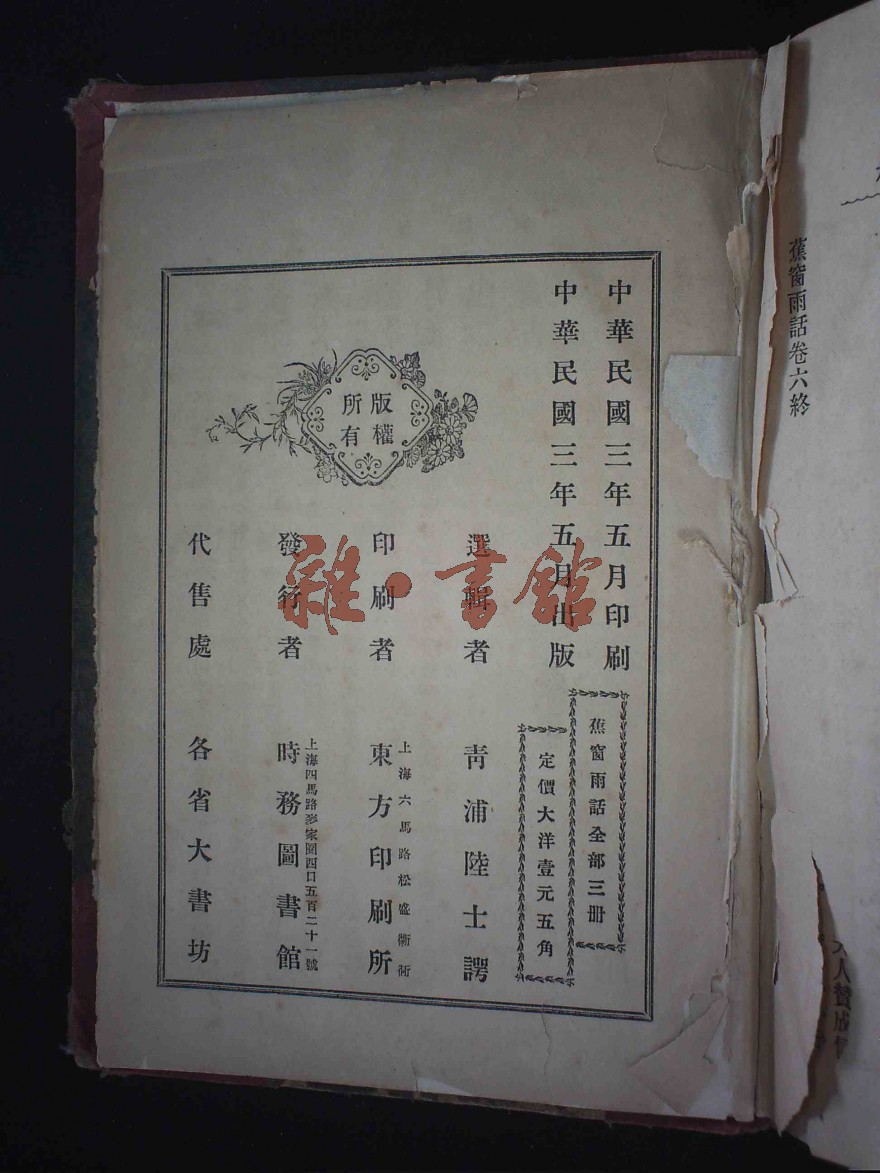 蕉窗雨話卷六終
中華民國三年五月印刷
中華民國三年五月出版
蕉窗雨話全部三册
定價大洋壹元五角
版權
所有
選輯者 青浦陸士諤
印刷者 上海六馬路松盛衖衖 東方印刷所
發行者 上海四馬路麥家圈四口五百二十一號 時務圖書館
代售處 各省大書坊
雜·書館
人贊成